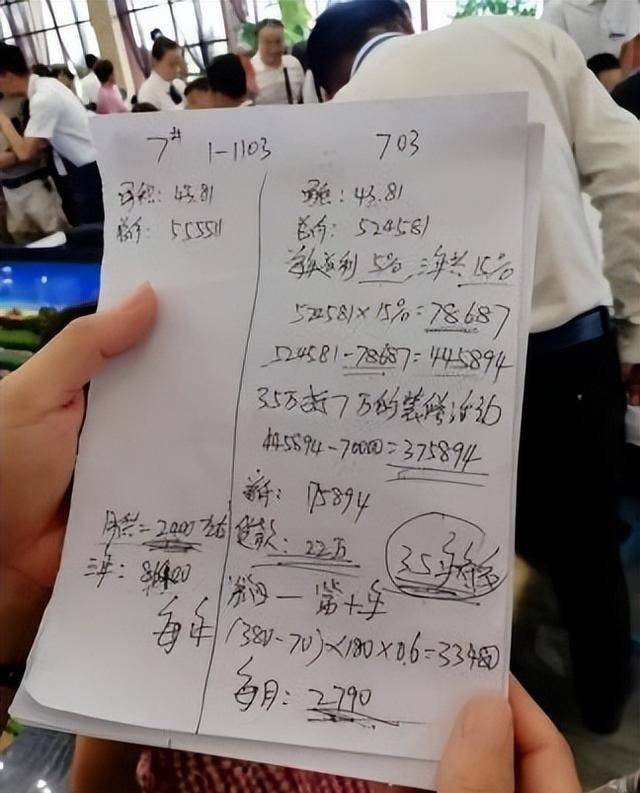 7# 1-1103
面积: 43.81
总价: 555511
月供=2000左右
三年:
每年
703
面积: 43.81
总价: 524581
每年返利 5% 三年共 15%
524581×15%=78687
524581-78687=445894
3.5万抵7万的装修活动
445894-70000=375894
首付: 175894
贷款: 22万
第四一第十年
(380-70)×180×0.6=33480
每月: 2790